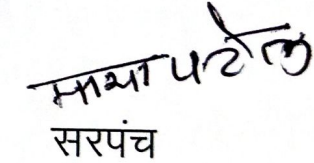 माया पटेल
सरपंच